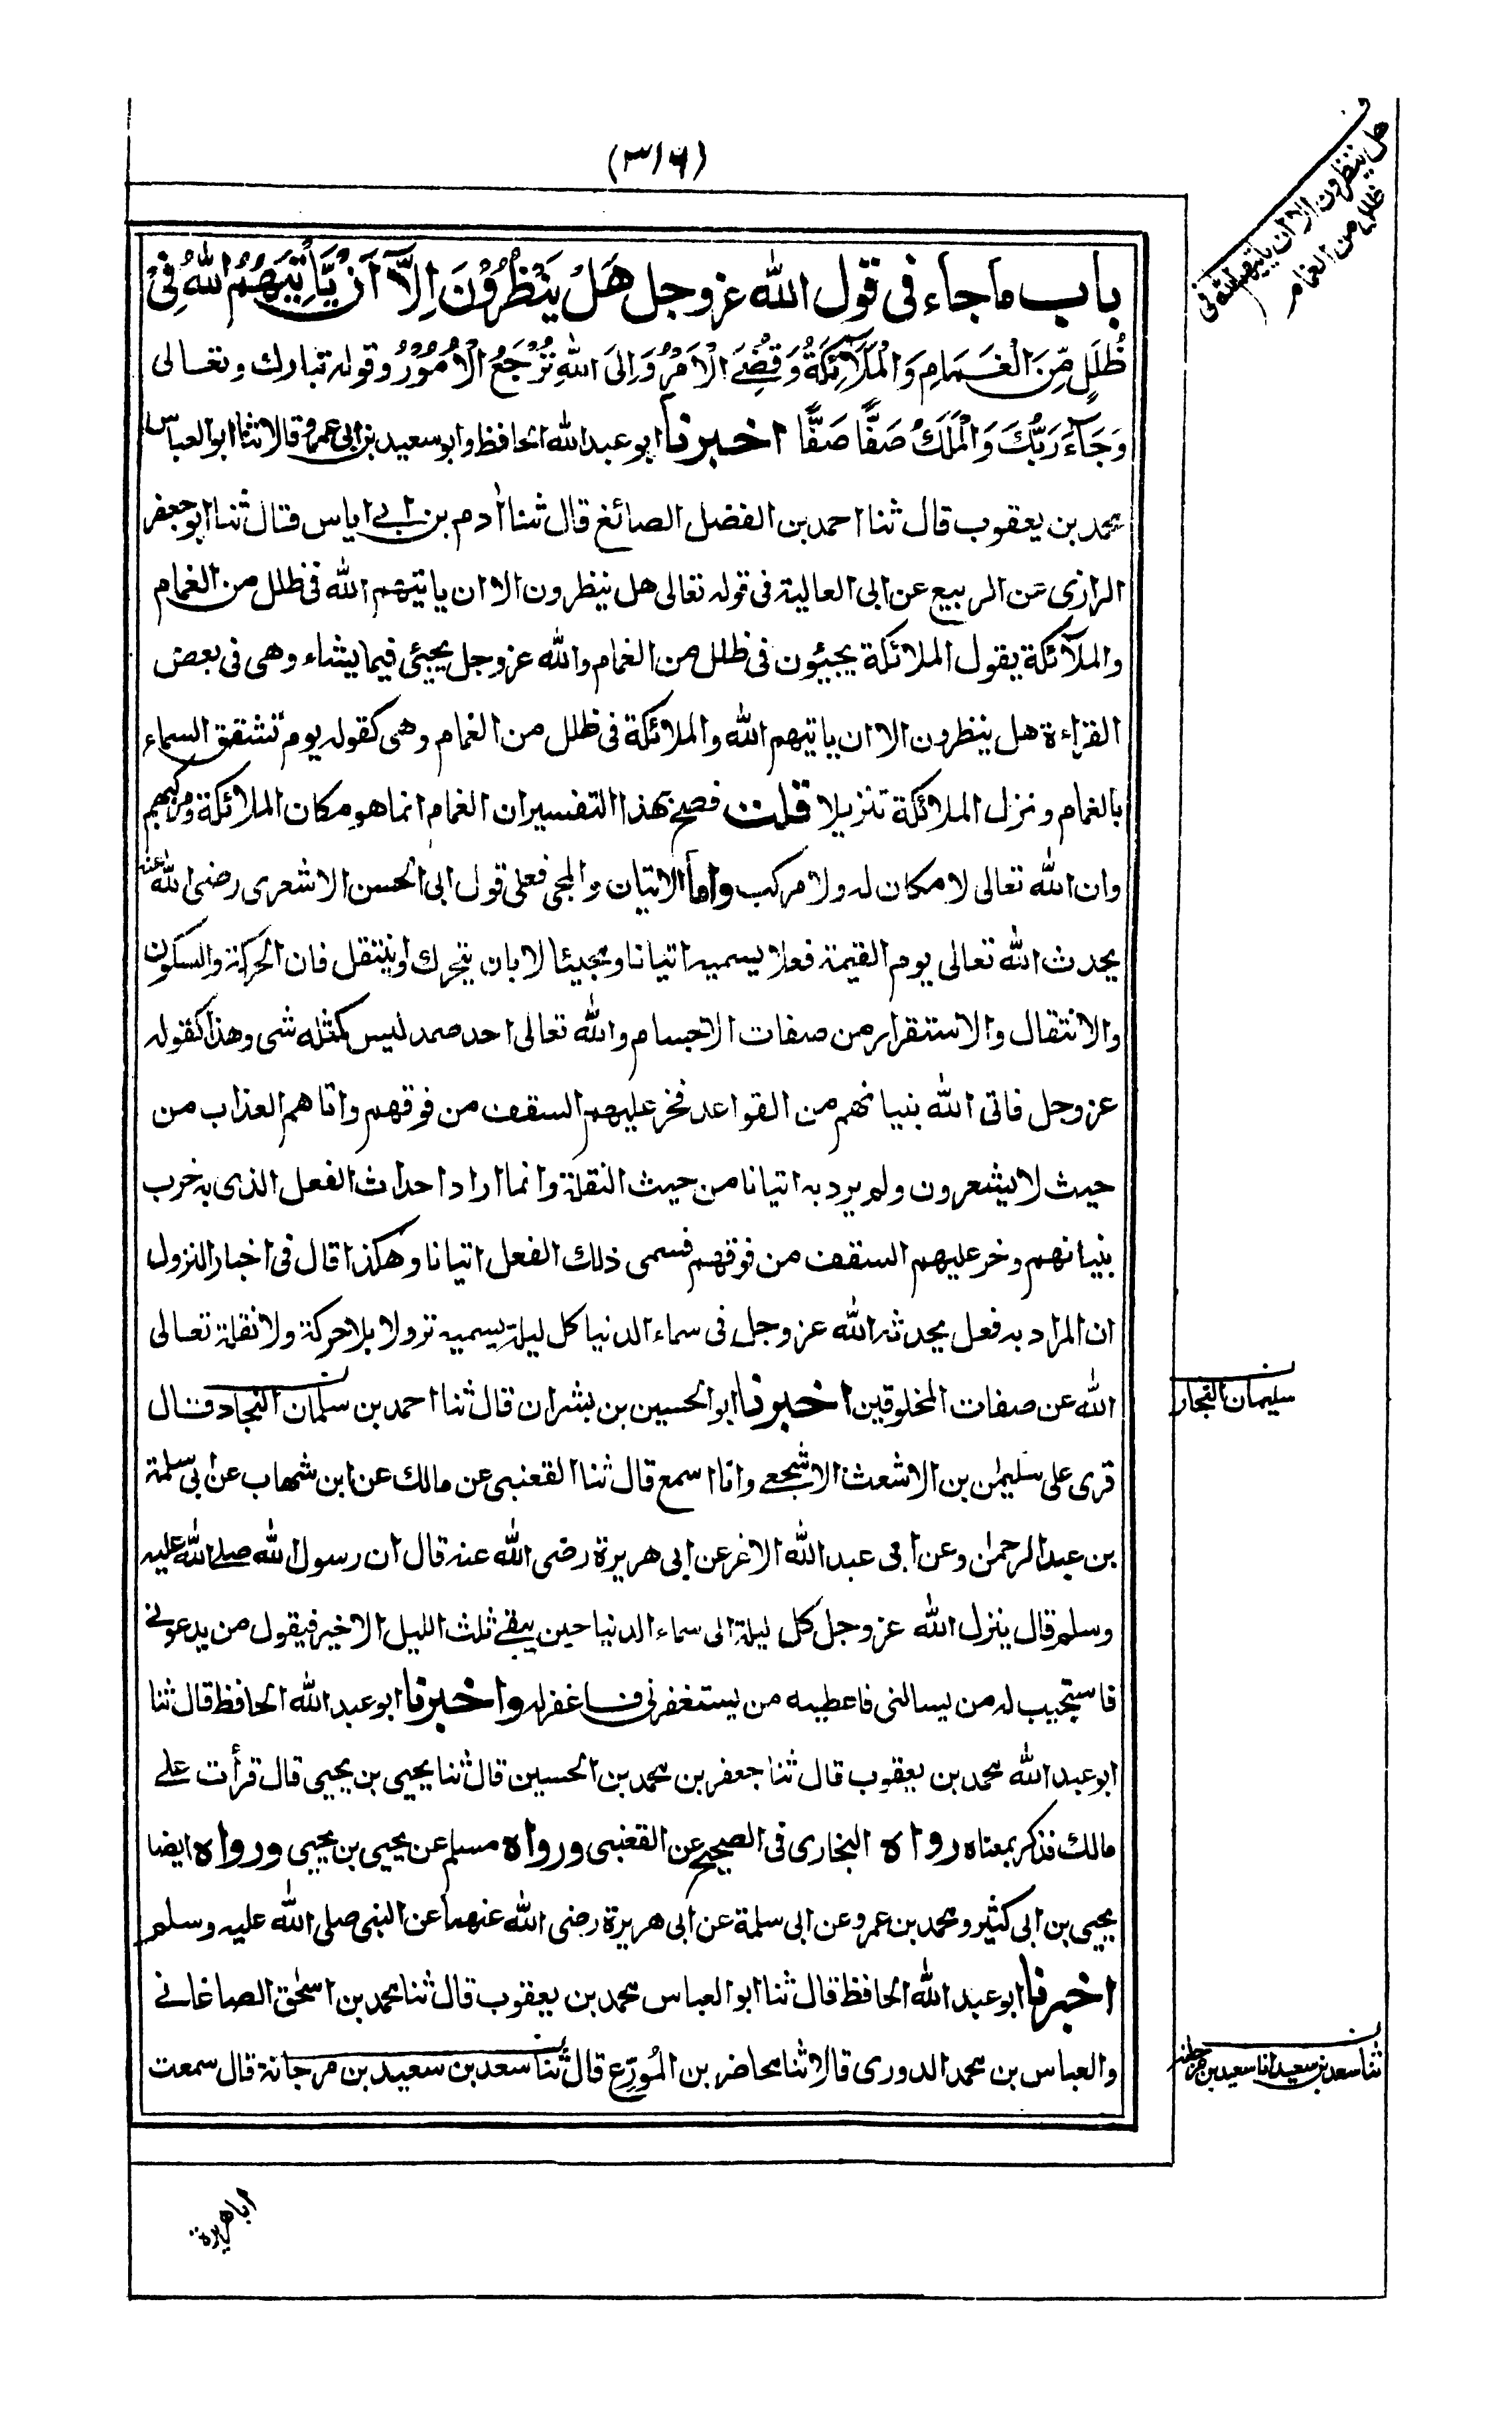 (٣١٦)
ف
هل ينظرون الا ان ياتيهم الله فى
ظلل من الغمام
باب ما جاء فى قول الله عز وجل هَلْ يَنْظُرُوْنَ اِلَّآ اَنْ يَّاْتِيَهُمُ اللهُ فِىْ
ظُلَلٍ مِّنَ الْغَمَامِ وَالْمَلَآئِكَةُ وَقُضِىَ الْاَمْرُ وَاِلَى اللهِ تُرْجَعُ الْاُمُوْرُ وقوله تبارك وتعالى
وَجَآءَ رَبُّكَ وَالْمَلَكُ صَفًّا صَفًّا اخبرنا ابو عبد الله الحافظ وابو سعيد بن ابى عمرو قالا ثنا ابو العباس
محمد بن يعقوب قال ثنا احمد بن الفضل الصائغ قال ثنا آدم بن ابى اياس قال ثنا ابو جعفر
الرازى عن الربيع عن ابى العالية فى قوله تعالى هل ينظرون الا ان ياتيهم الله فى ظلل من الغمام
والملآئكة يقول الملائكة يجيئون فى ظلل من الغمام والله عز وجل يجيئ فيما يشاء وهى فى بعض
القراءة هل ينظرون الا ان ياتيهم الله والملائكة فى ظلل من الغمام وهى كقوله يوم تشقق السماء
بالغمام ونزل الملائكة تنزيلا قلت فصح بهذا التفسير ان الغمام انما هو مكان الملائكة ومركبهم
وان الله تعالى لا مكان له ولا مركب واما الاتيان والمجى فعلى قول ابى الحسن الاشعرى رضى الله عنه
يحدث الله تعالى يوم القيمة فعلا يسميه اتيانا ومجيئا لا بان يتحرك او ينتقل فان الحركة والسكون
والانتقال والاستقرار من صفات الاجسام والله تعالى احد صمد ليس كمثله شى وهذا كقوله
عز وجل فاتى الله بنيانهم من القواعد فخر عليهم السقف من فوقهم واتاهم العذاب من
حيث لا يشعرون ولم يرد به اتيانا من حيث النقلة وانما اراد احداث الفعل الذى به خرب
بنيانهم وخر عليهم السقف من فوقهم فسمى ذلك الفعل اتيانا وهكذا قال فى اخبار النزول
ان المراد به فعل يحدثه الله عز وجل فى سماء الدنيا كل ليلة يسميه نزولا بلا حركة ولا نقلة تعالى
الله عن صفات المخلوقين اخبرنا ابو الحسين بن بشران قال ثنا احمد بن سلمان النجاد قال
ن
سليمان النجار
قرى على سليمن بن الاشعث الاشجعى وانا اسمع قال ثنا القعنبى عن مالك عن ابن شهاب عن ابى سلمة
بن عبد الرحمن وعن ابى عبد الله الاغر عن ابى هريرة رضى الله عنه قال ان رسول الله صلى الله عليه
وسلم قال ينزل الله عز وجل كل ليلة الى سماء الدنيا حين يبقى ثلث الليل الاخير فيقول من يدعونى
فاستجيب له من يسالنى فاعطيه من يستغفرنى فاغفر له واخبرنا ابو عبد الله الحافظ قال ثنا
ابو عبد الله محمد بن يعقوب قال ثنا جعفر بن محمد بن الحسين قال ثنا يحيى بن يحيى قال قرأت على
مالك فذكر بمعناه رواه البخارى فى الصحيح عن القعنبى ورواه مسلم عن يحيى بن يحيى ورواه ايضا
يحيى بن ابى كثير ومحمد بن عمرو عن ابى سلمة عن ابى هريرة رضى الله عنهما عن النبى صلى الله عليه وسلم
اخبرنا ابو عبد الله الحافظ قال ثنا ابو العباس محمد بن يعقوب قال ثنا محمد بن اسحق الصاغانى
والعباس بن محمد الدورى قالا ثنا محاضر بن المُورِّع قال ثنا سعد بن سعيد بن مرجانة قال سمعت
ن
ثنا سعد بن سعيد انا سعيد بن مرجانة
ابا هريرة